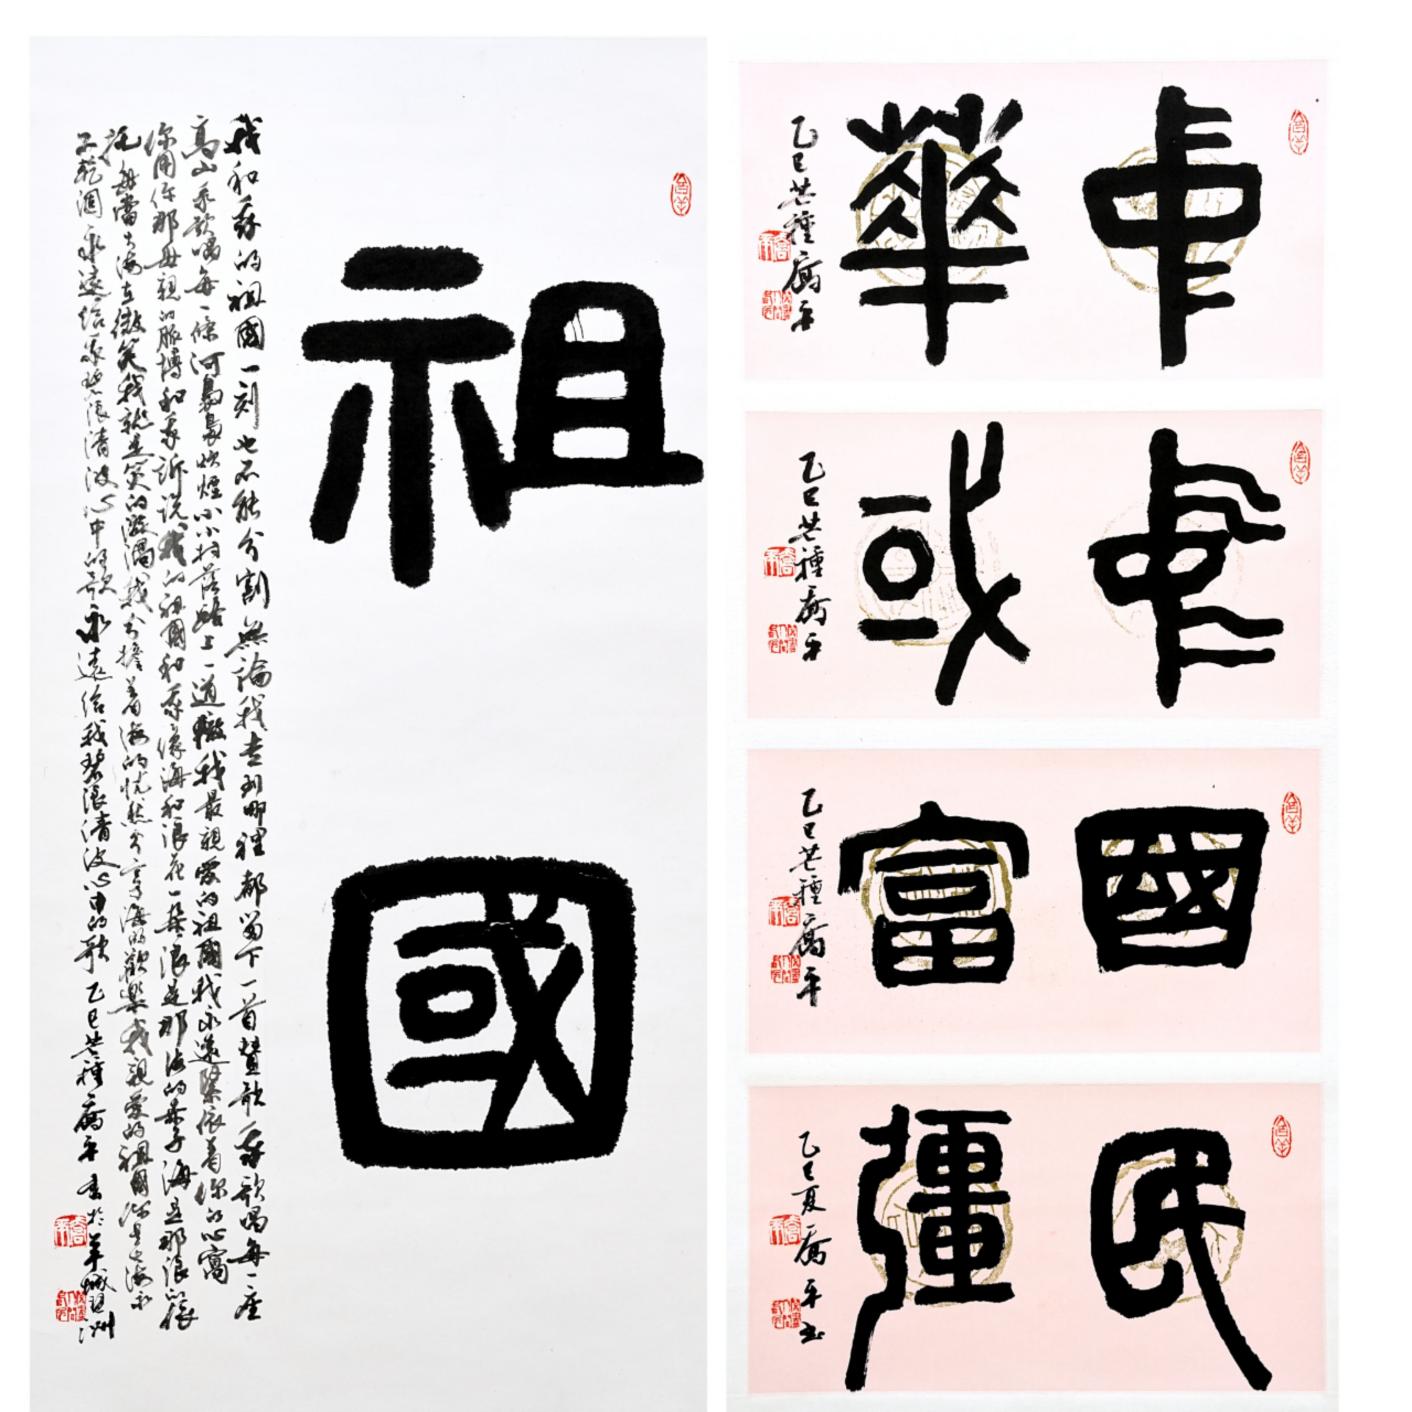 祖國
我和我的祖國一刻也不能分割無論我走到哪裡都留下一首贊歌我歌唱每一座
高山我歌唱每一條河裊裊炊煙小小村落路上一道轍我最親愛的祖國我永遠緊依着你的心窩
你用你那母親的脈搏和我訴說我的祖國和我像海和浪花一朵浪是那海的赤子海是那浪的依
托每當大海在微笑我就是笑的漩渦我分擔着海的憂愁分享海的歡樂我親愛的祖國你是大海永
不乾涸永遠給我碧浪清波心中的歌永遠給我碧浪清波心中的歌乙巳芒種喬平書於羊城琶洲
中華
乙巳芒種喬平
中或
乙巳芒種喬平
國富
乙巳芒種喬平
民彊
乙巳夏喬平書